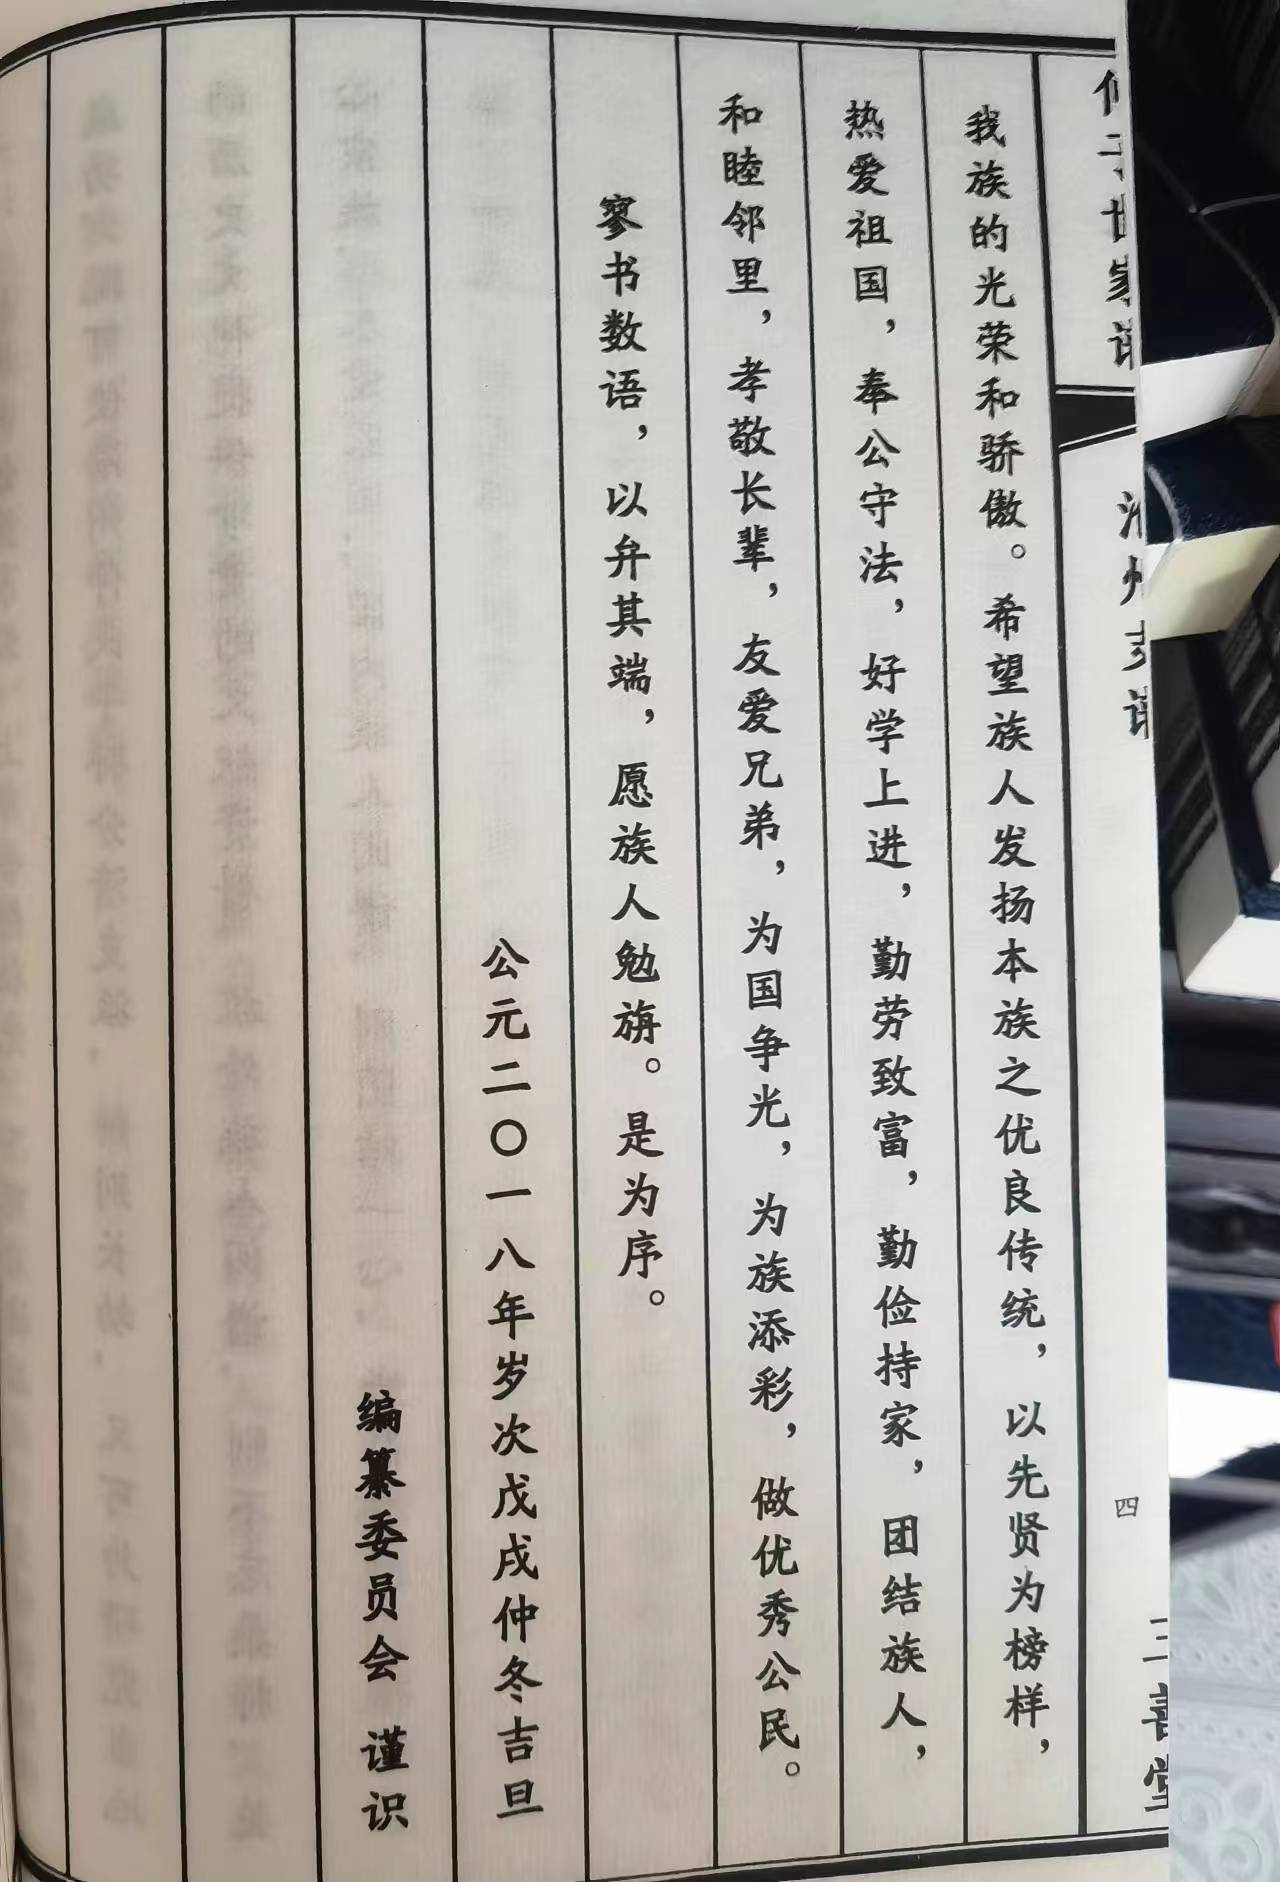 我族的光荣和骄傲。希望族人发扬本族之优良传统，以先贤为榜样，
热爱祖国，奉公守法，好学上进，勤劳致富，勤俭持家，团结族人，
和睦邻里，孝敬长辈，友爱兄弟，为国争光，为族添彩，做优秀公民。
寥书数语，以弁其端，愿族人勉旃。是为序。
公元二〇一八年岁次戊戌仲冬吉旦
编纂委员会 谨识
四
三善堂